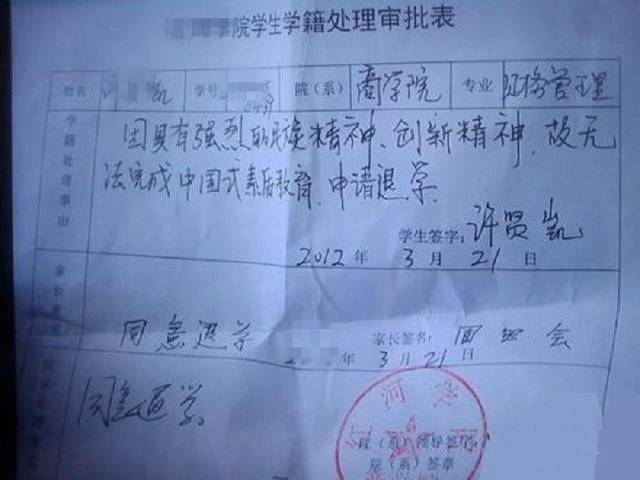 院学生学籍处理审批表
姓名 凯 学号 院（系） 商学院 专业 管理
学籍处理事由
因具有强烈的民族精神、创新精神，故无
法完成中国式素质教育，申请退学.
学生签字：许贤凯
2012年 3月 21日
家长意见
同意退学 家长签名：
年 3月 21日
同意退学
院（系）领导签字：
院（系）签章